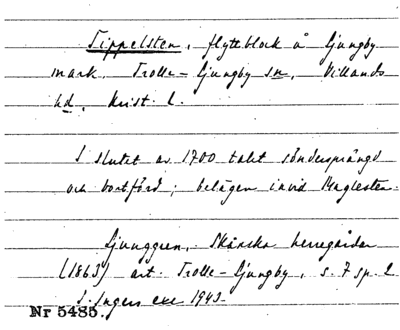 Tippelsten, flyttblock å Ljungby
mark. Trolle-Ljungby sn, Villands
hd, Krist. l.
I slutet av 1700 talet söndersprängd
och bortförd; belägen invid Maglesten.
Ljunggren, Skånska herregårdar
(1863) art. Trolle-Ljungby, s. 7 sp. 2
S. Ingers exc 1943.
Nr 5485.